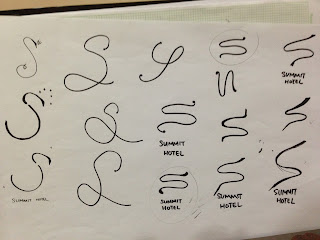 SUMMIT
HOTEL
SUMMIT
HOTEL
SUMMIT HOTEL
SUMMIT
HOTEL
SUMMIT
HOTEL
SUMMIT
HOTEL